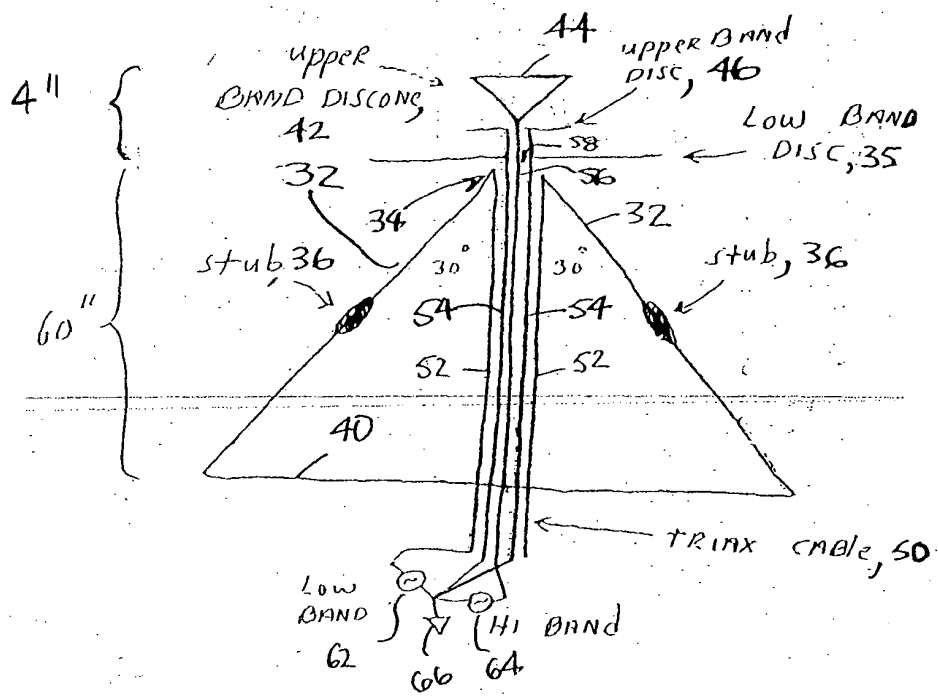 44
upper
BAND DISCONE,
42
upper BAND
DISC, 46
4"
LOW BAND
DISC, 35
58
56
32
34
32
stub, 36
30°
30°
stub, 36
60"
54
54
52
52
40
TRIAX CABLE, 50
LOW
BAND
62
66
HI BAND
64